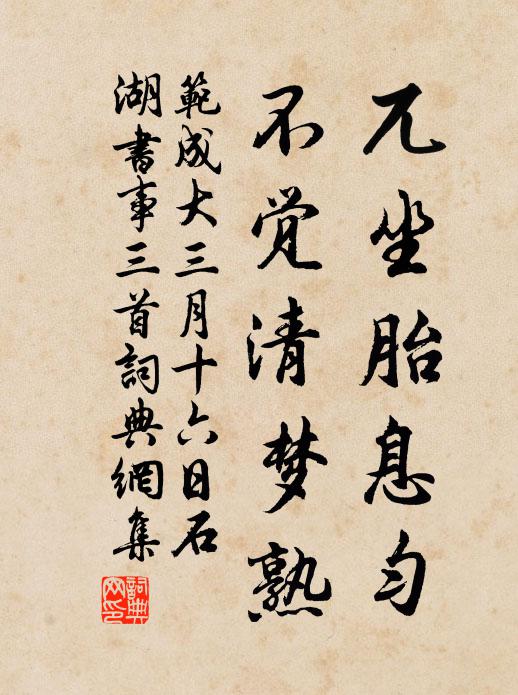 兀坐胎息匀
不觉清梦熟
範成大三月十六日石
湖書事三首詞典網集
詞典网印